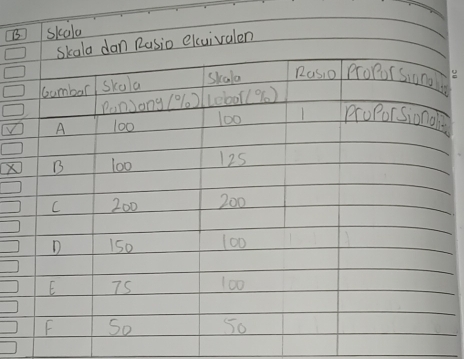 B Skala
Skala dan Rasio ekuivalen
Gambar Skala Panjang (%) Skala Lebar (%) Rasio Proporsionalitas
A 100 100 1 Proporsional
B 100 125
C 200 200
D 150 100
E 75 100
F 50 50